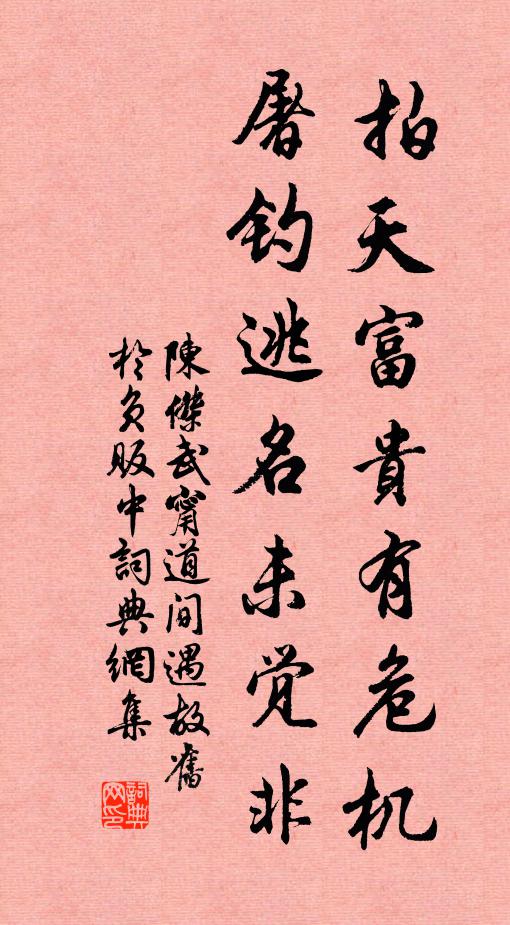 拍天富貴有危机
屠钓逃名未觉非
陳傑武甯道间遇故舊
於負販中詞典網集
詞典网印